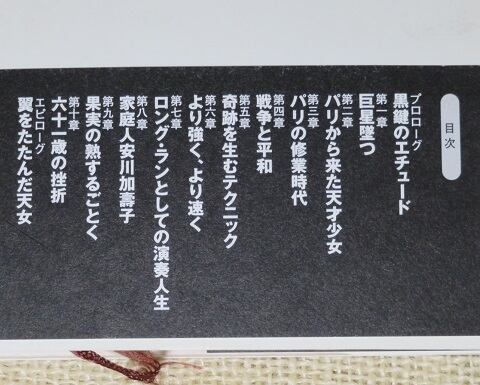 目次
プロローグ
黒鍵のエチュード
第一章
巨星墜つ
第二章
パリから来た天才少女
第三章
パリの修業時代
第四章
戦争と平和
第五章
奇跡を生むテクニック
第六章
より強く、より速く
第七章
ロング・ランとしての演奏人生
第八章
家庭人安川加壽子
第九章
果実の熟するごとく
第十章
六十一歳の挫折
エピローグ
翼をたたんだ天女